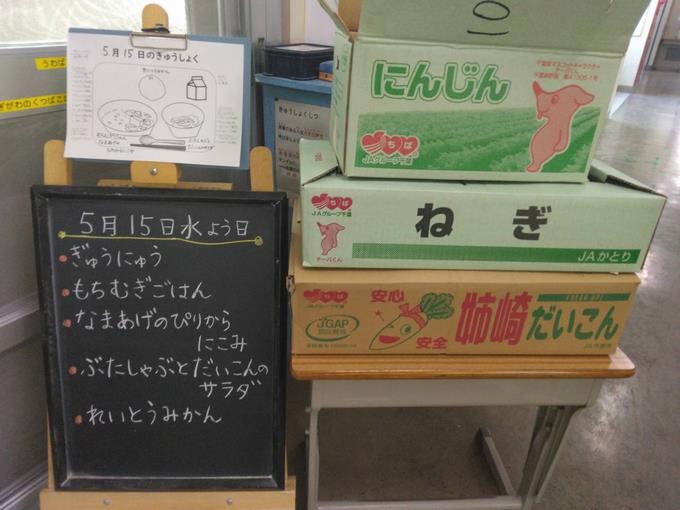 5月15日のきゅうしょく
うわば
5月15日水よう日
ぎゅうにゅう
もちむぎごはん
なまあげのぴりから
にこみ
ぶたしゃぶとだいこんの
サラダ
れいとうみかん
きゅうしょくしつ
にんじん
千葉県マスコットキャラクター
チーバくん
ちば
JAグループ千葉
ちば
JAグループ千葉
チーバくん
ねぎ
JAかとり
安心
安全
JGAP
姉崎だいこん